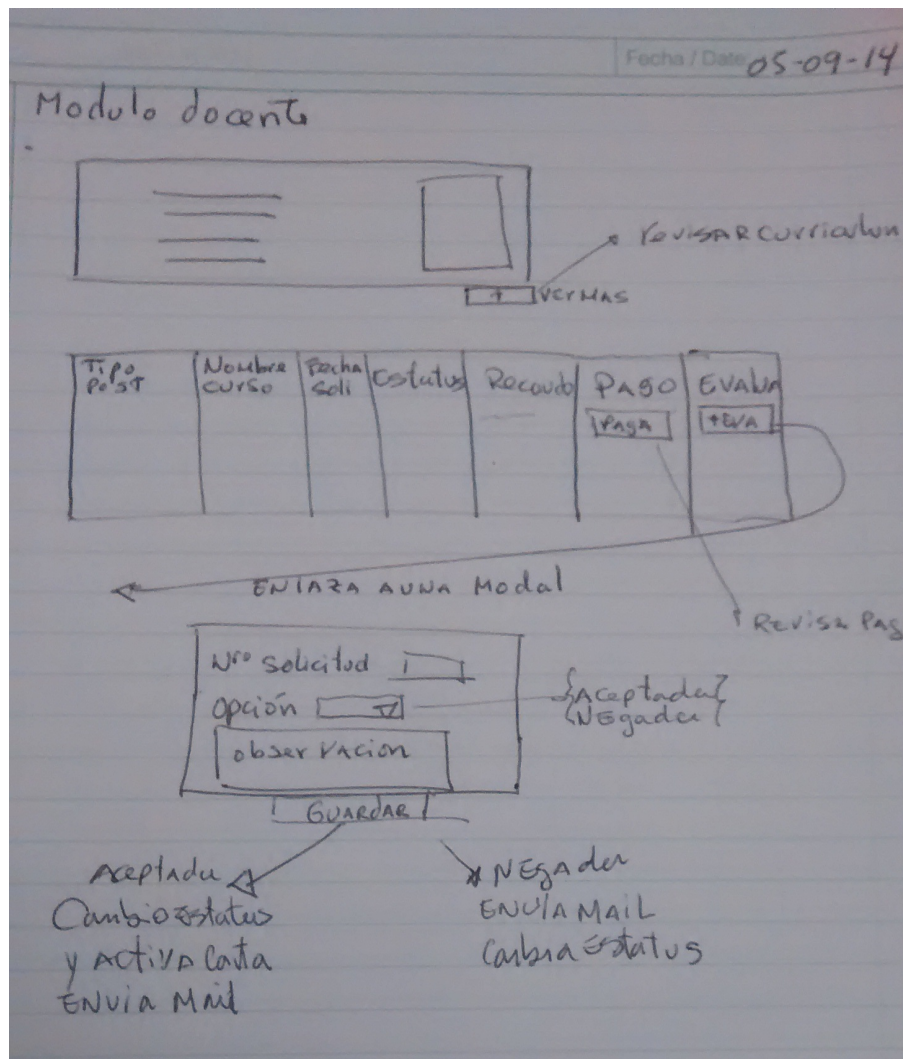 Fecha / Date 05-09-14
Modulo docente
revisAR curriculun
+ VER MAS
Tipo Post
Nombre curso
Fecha soli
Estatus
Recaudo
PAGO
EVALUA
PAGA
+EVA
ENlAZA A UNA Modal
Revisa Pag
Nro solicitud
opción
{Aceptada}
{NEgada}
obserVAcion
GUARDAR
Aceptada
Cambio Estatus
y ACTIVA Carta
ENVia Mail
NEgada
ENVIA MAIL
Cambia Estatus